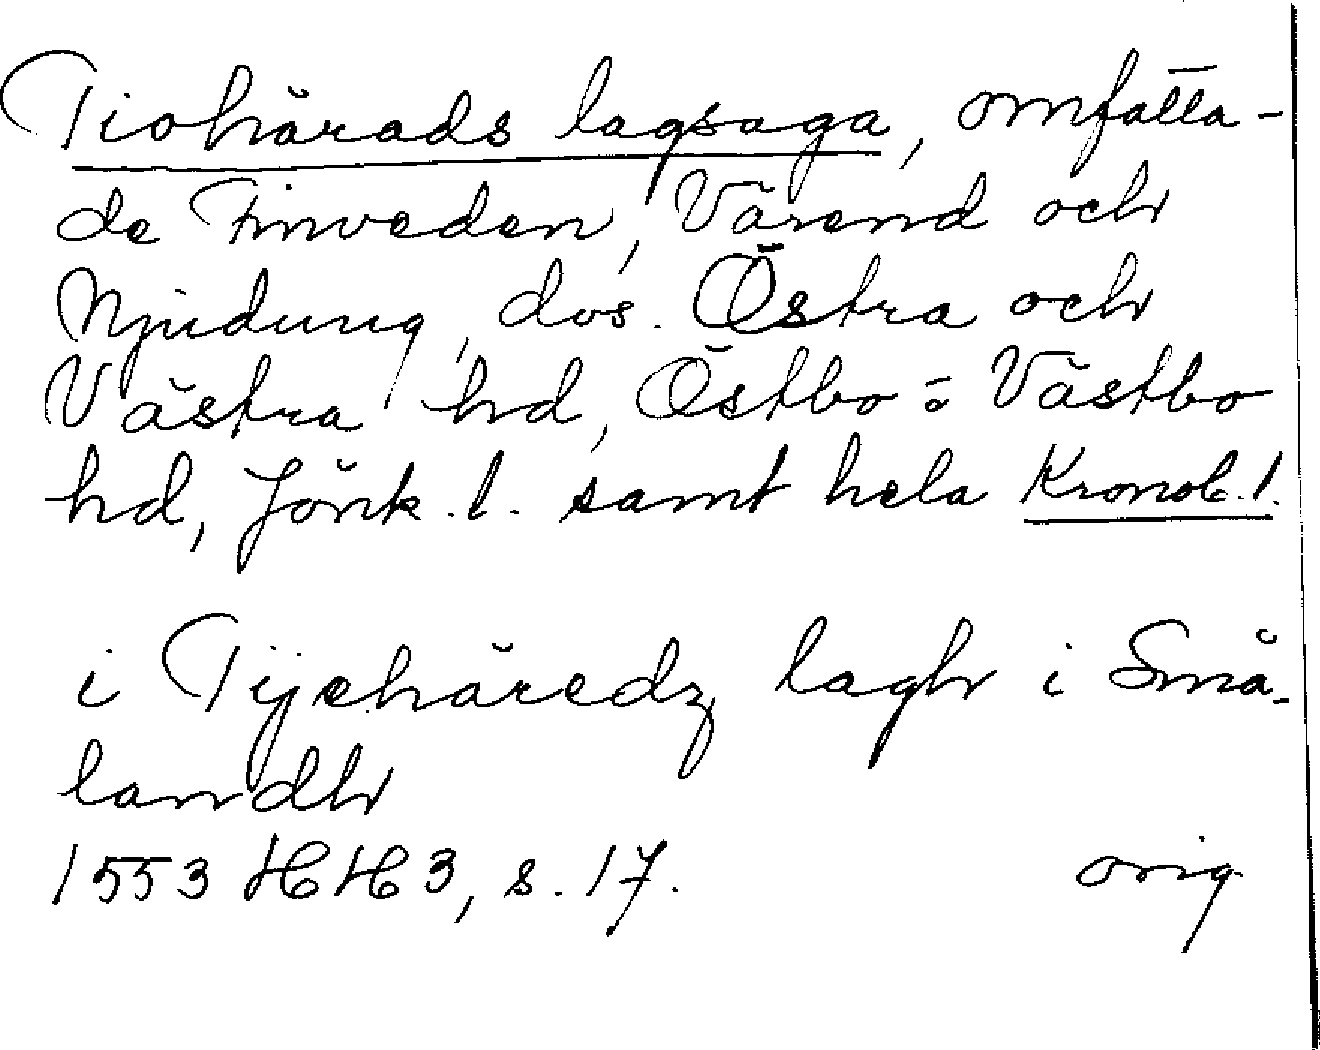 Tiohärads lagsaga, omfatta-
de Finveden, Värend och
Njudung, dvs. Östra och
Västra hd, Östbo o Västbo
hd, Jönk. l. samt hela Kronob. l.
i Tijehäredz lagh i Små-
landh
1553 HH 3, s. 17. orig